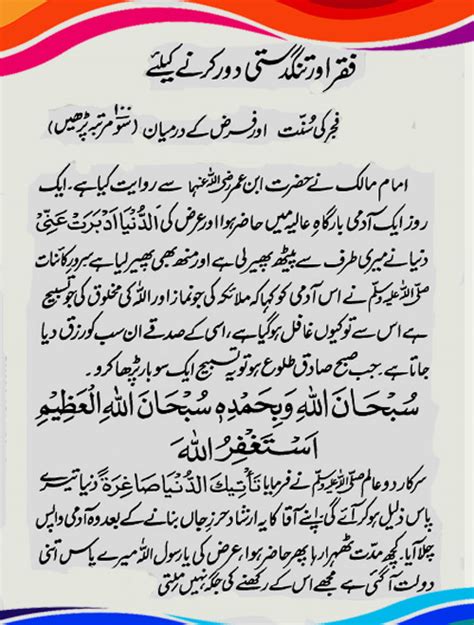 فقر اور تنگدستی دور کرنے کیلئے
فجر کی سُنّت اور فرض کے درمیان (۱۰۰ سَو مرتبہ پڑھیں)
امام مالک نے حضرت ابن عمر رضی اللہ عنہما سے روایت کیا ہے۔ ایک
روز ایک آدمی بارگاہِ عالیہ میں حاضر ہوا اور عرض کی اَلدُّنْیَا اَدْبَرَتْ عَنِّیْ
دنیا نے میری طرف سے پیٹھ پھیر لی ہے اور منھ بھی پھیر لیا ہے سرورِ کائنات
صلی اللہ علیہ وسلم نے اس آدمی کو کہا کہ ملائکہ کی جو نماز اور اللہ کی مخلوق کی جو تسبیح
ہے اس سے تو کیوں غافل ہو گیا ہے، اسی کے صدقے ان سب کو رزق دیا
جاتا ہے۔ جب صبح صادق طلوع ہو تو یہ تسبیح ایک سو بار پڑھا کرو۔
سُبْحَانَ اللهِ وَبِحَمْدِهٖ سُبْحَانَ اللهِ الْعَظِیْمِ
اَسْتَغْفِرُ اللهَ
سرکار دو عالم صلی اللہ علیہ وسلم نے فرمایا تَأْتِیْكَ الدُّنْیَا صَاغِرَةً دنیا تیرے
پاس ذلیل ہو کر آئے گی اپنے آقا کا یہ ارشاد حرزِ جاں بنانے کے بعد وہ آدمی واپس
چلا آیا۔ کچھ مدت ٹھہرا رہا پھر حاضر ہوا، عرض کی یا رسول اللہ میرے پاس اتنی
دولت آگئی ہے مجھے اس کے رکھنے کی جگہ نہیں ملتی